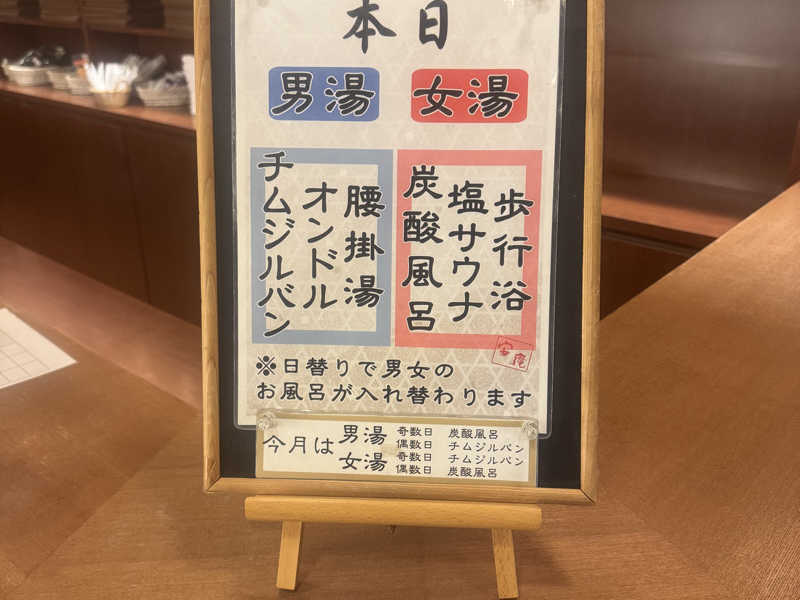 本日
男湯
女湯
歩行浴
塩サウナ
炭酸風呂
腰掛湯
オンドル
チムジルバン
※日替りで男女の
お風呂が入れ替わります
今月は
男湯 奇数日 炭酸風呂
偶数日 チムジルバン
女湯 奇数日 チムジルバン
偶数日 炭酸風呂